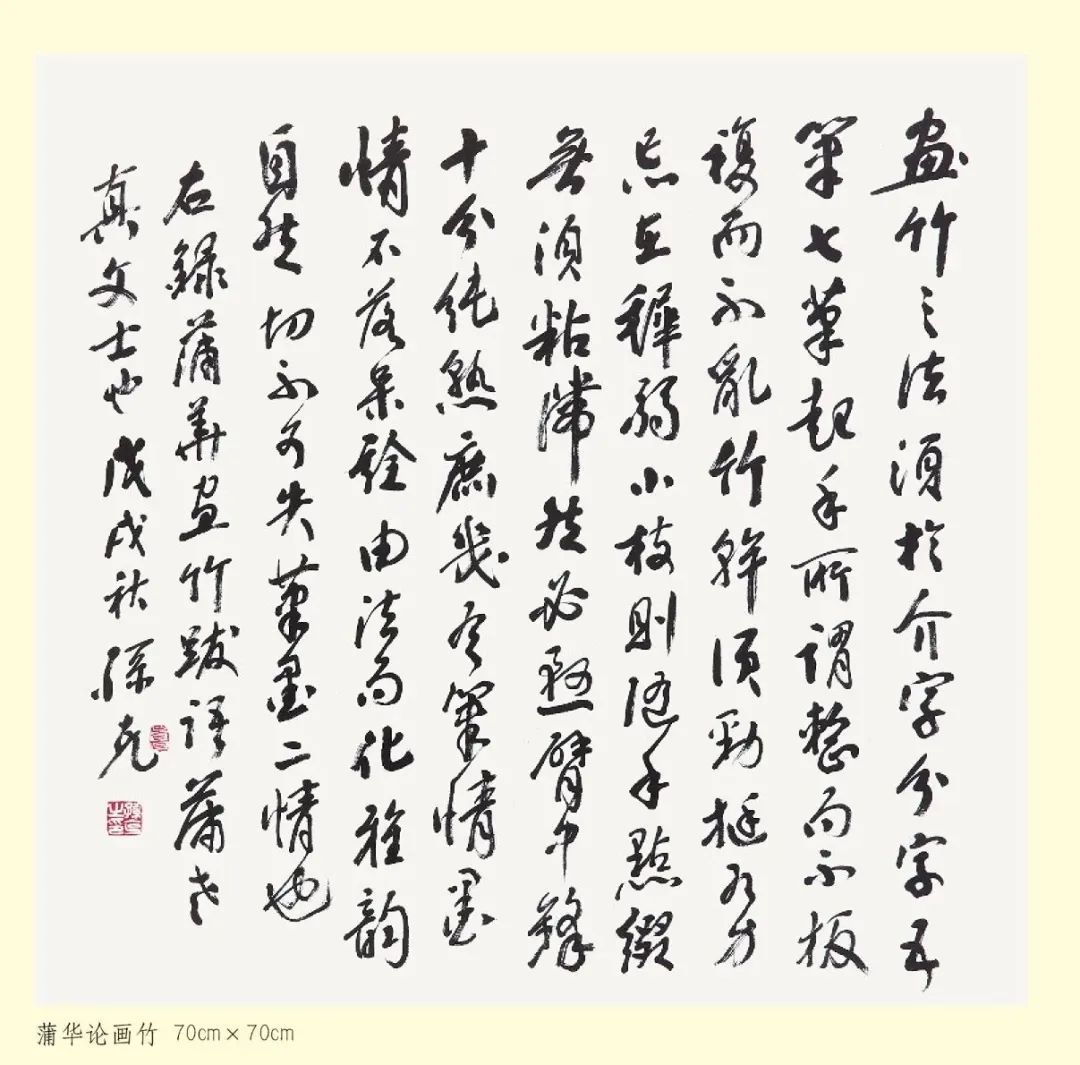 畫竹之法須於介字分字五
筆七筆起手所謂整而不板
複而不亂竹幹須勁挺有力
忌在穉弱小枝則随手點綴
無須粘滯然必懸臂中鋒
十分純熟庶幾有筆情墨
情不落呆詮由法而化雅韻
自然切不可失筆墨二情也
右録蒲華畫竹跋語蒲老
真文士也戊戌秋孫克
蒲华论画竹 70cm×70cm